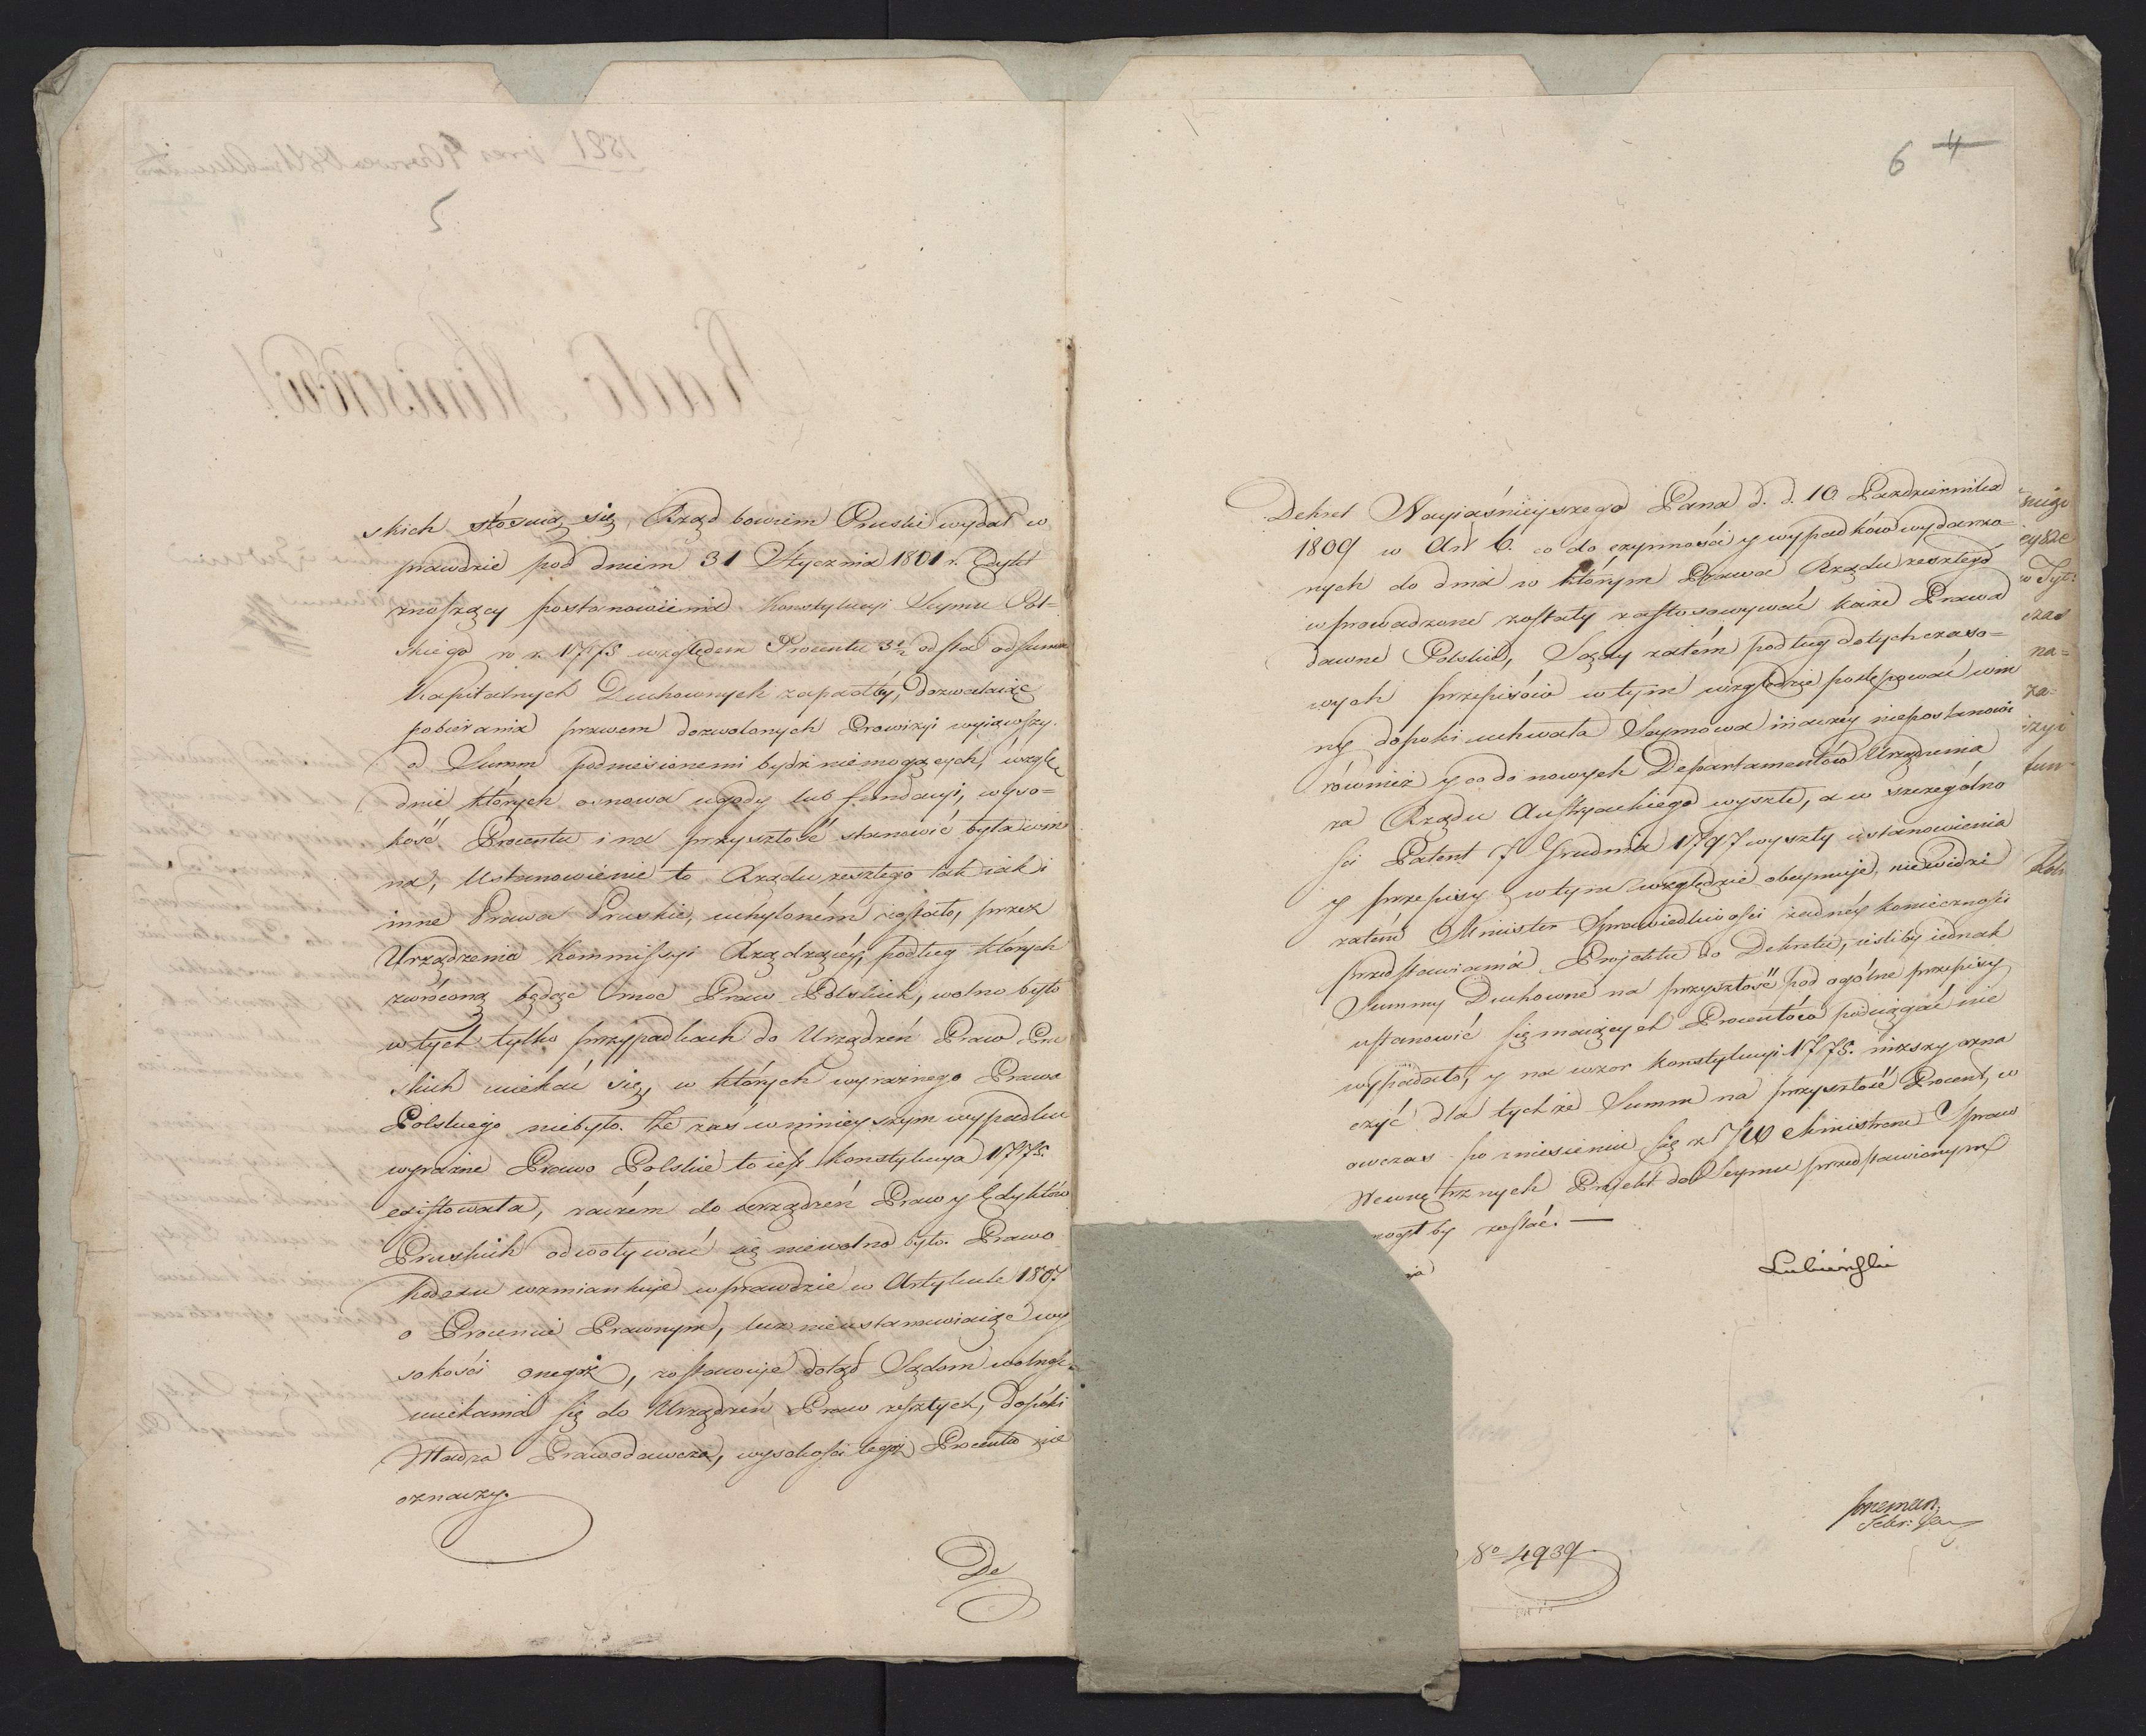 skich stósuią się, Rząd bowiem Pruski wydał w
prawdzie pod dniem 31 Stycznia 1801 r. Edykt
znoszący postanowienia Konstytucyi Seymu Pol=
skiego z r. 1775 względem Procentu 3½ od sta od summ
Kapitalnych Duchownych zapadłéy, dozwalaiąc
pobierania prawem dozwolonych Prowizyi wyiąwszy
od Summ podniesionemi bydź niemogących, wzglę
dnie których osnowa ugody lub fundacyi, wyso=
kość Procentu i na przyszłość stanowić była win
na, Ustanowienie to Rządu zeszłego tak iak i
inne Prawa Pruskie, uchyloném zostało, przez
Urządzenia Kommissyi Rządzącéy, podług których
zwróconą będąc moc Praw Polskich, wolno było
w tych tylko przypadkach do Urządzeń Praw Pru
skich uciekać się, w których wyraźnego Prawa
Polskiego niebyło. Że zaś w ninieyszym wypadku
wyraźne Prawo Polskie to iest Konstytucya 1775.
existowała, zaczém do urządzeń Praw y Edyktów
Pruskich odwoływać się niewolno było. Prawo
Kodexu wzmiankuje wprawdzie w Artykule 1907
o Procencie Prawnym, lecz nieustanawiaiąc wy
sokości onegoż, zostawuje dotąd Sądom wolność
uciekania się do Urządzeń Praw zeszłych, dopóki
Władza Prawodawcza, wysokości tegoż Procentu nie
oznaczy.
De
6 4
Dekret Nayiaśnieyszego Pana d. d. 10 Pazdziernika
1809 w Art 6. co do czynności y wypadków wydarzo=
nych do dnia w którym Prawa Rządu zeszłego
wprowadzone zostały zastosowywać każe Prawa
dawne Polskie, Sądy zatém podług dotychczaso=
wych przepisów w tym względzie postępować win
ny dopoki uchwała Seymowa inaczéy niepostanowi
również y co do nowych Departamentów Urządzenia
za Rządu Austryackiego wyszłe, a w szczególno
ści Patent 7 Grudnia 1797 wyszły ustanowienia
y przepisy w tym względzie obeymuje, niewidzi
zatém Minister Sprawiedliwości żadnéy konieczności
przedstawiania Projektu do Dekretu, iesliby iednak
Summy Duchowne na przyszłość pod ogólne przepisy
ustanowić się maiących Procentów podciągać nie
wypadało, y na wzor Konstytucyi 1775. niższy ozna
czyć dla tychże Summ na przyszłość Procent, w
owczas po zniesieniu się z JW Ministrem Spraw
Wewnętrznych Projekt do Seymu przedstawionym
mógł by zostać. —
Lubieński
No 4939